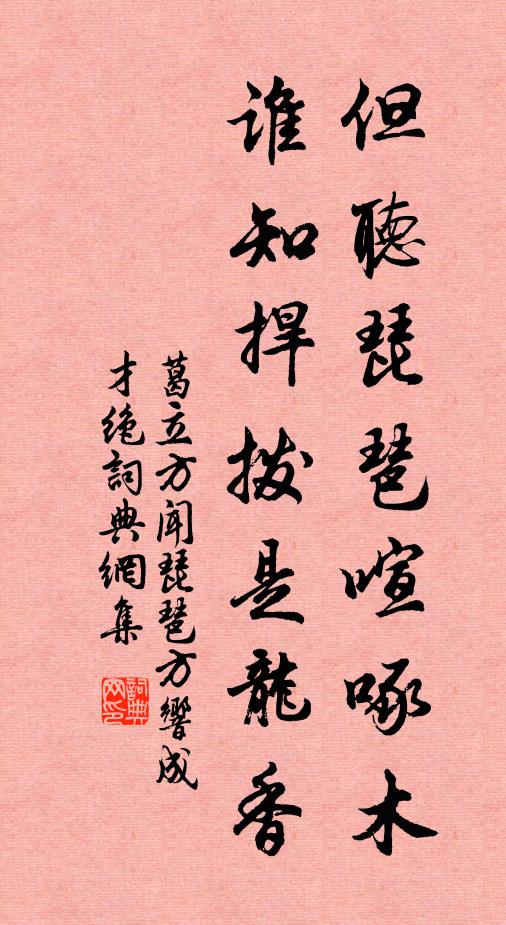 但聽琵琶喧啄木
誰知捍撥是龍香
葛立方聞琵琶方響成
才絕詞典網集
詞典網印